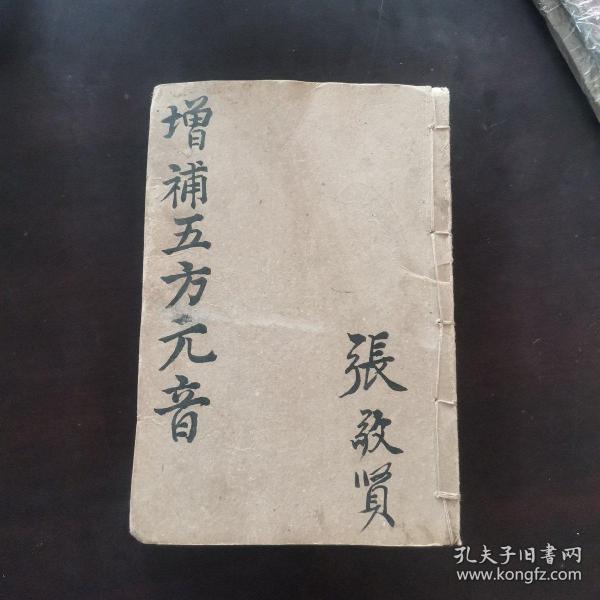 增補五方元音
張敬賢
孔夫子旧書网
www.kongfz.com